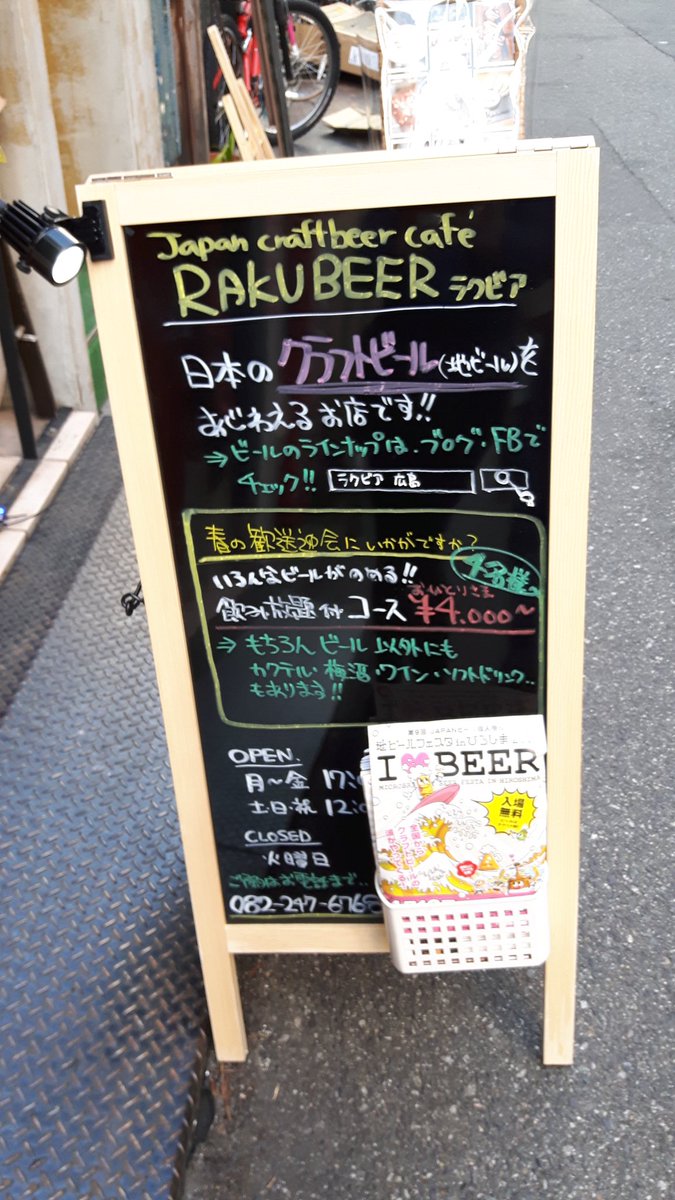 Japan craftbeer café
RAKUBEER ラクビア
日本のクラフトビール(地ビール)を
あじわえるお店です!!
⇒ビールのラインナップは、ブログ・FBで
チェック!! ラクビア 広島
春の歓送迎会にいかがですか?
いろんなビールがのめる!! 4名様〜
飲み放題付コース おひとりさま ¥4.000〜
⇒ もちろんビール以外にも
カクテル・梅酒・ワイン・ソフトドリンク..
もあります!!
OPEN.
月〜金 17:0
土日・祝 12:0
CLOSED
火曜日
ご予約はお電話まで..
082-247-6768
地ビールフェスタinひろしま
I BEER
FESTA IN HIROSHIMA
入場
無料
全国から
クラフトビールの